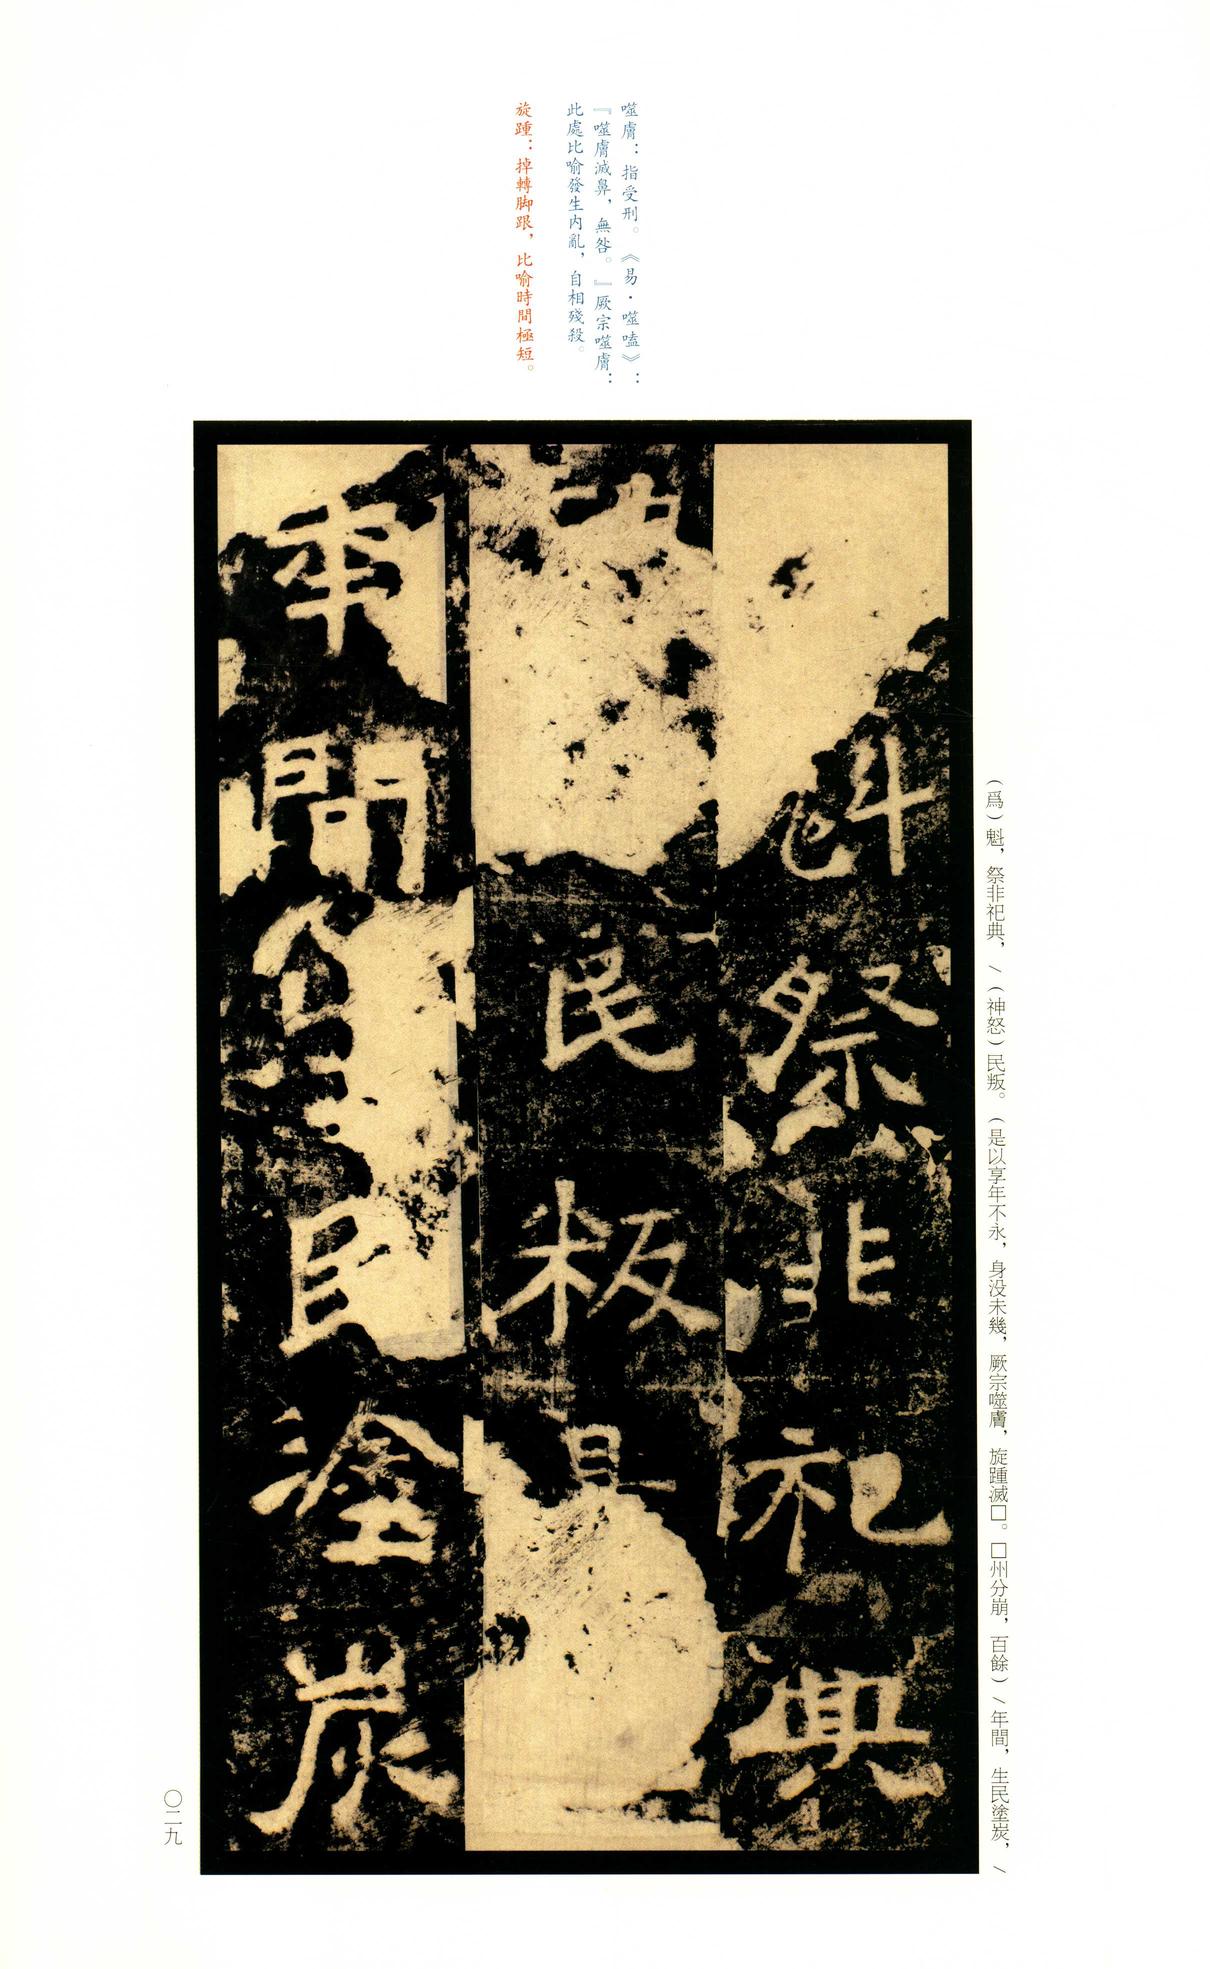 噬膚：指受刑。《易·噬嗑》：
『噬膚滅鼻，無咎。』厥宗噬膚：
此處比喻發生内亂，自相殘殺。
旋踵：掉轉脚跟，比喻時間極短。
（爲）魁，祭非祀典，/（神怒）民叛。（是以享年不永，身没未幾，厥宗噬膚，旋踵滅□。□州分崩，百餘）/年間，生民塗炭，/
魁祭非祀典
民叛是
年間生民塗炭
〇二九